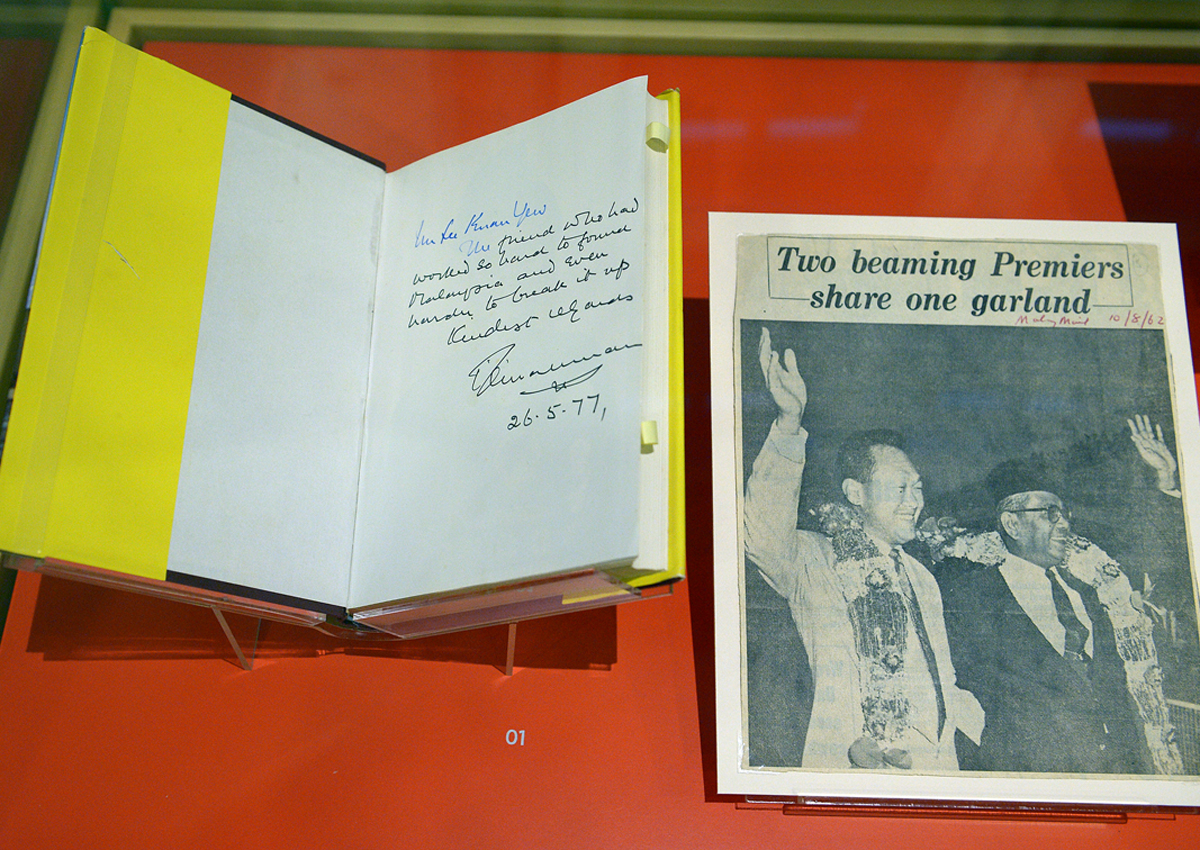 Mr Lee Kuan Yew
The friend who had
worked so hard to found
Malaysia and even
harder to break it up
Kindest regards
26·5·77,
01
Two beaming Premiers
share one garland
Malay Mail 10/8/62